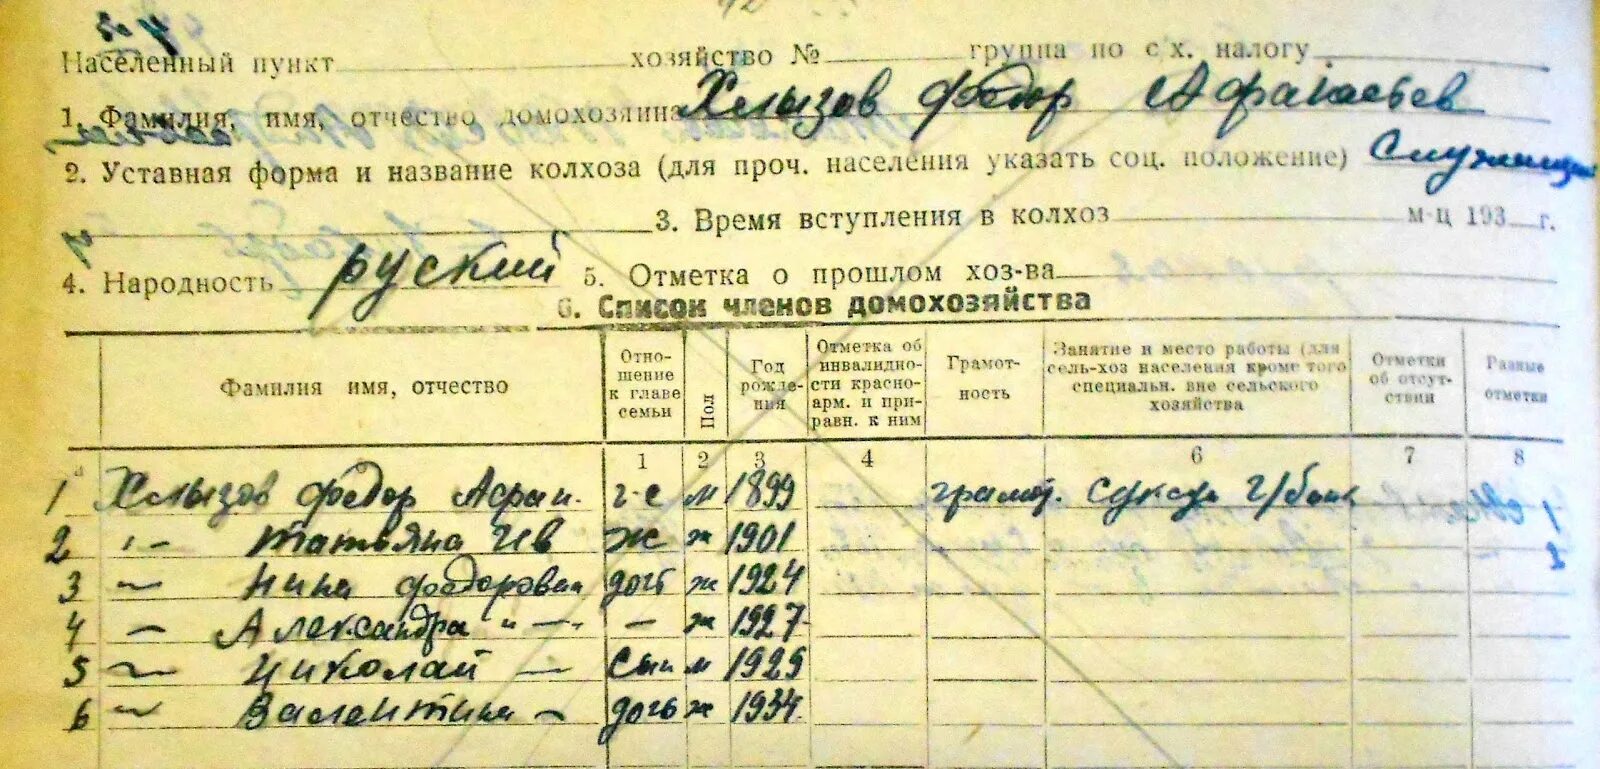 Населенный пункт хозяйство № группа по с х. налогу
1. Фамилия, имя, отчество домохозяина Хлызов Федор Афанасьев
2. Уставная форма и название колхоза (для проч. населения указать соц. положение) Служащий
3. Время вступления в колхоз м-ц 193 г.
4. Народность руский 5. Отметка о прошлом хоз-ва
6. Список членов домохозяйства
Фамилия имя, отчество Отно-шение к главе семьи Пол Год рожде-ния Отметка об инвалидно-сти красно-арм. и при-равн. к ним Грамот-ность Занятие и место работы (для сель-хоз населения кроме того специальн. вне сельского хозяйства Отметки об отсут-ствии Разные отметки
1 2 3 4 6 7 8
1 Хлызов Федор Афан. г-с м 1899 грамот. Суксун г/банк
2 -"- Татьяна Ив ж ж 1901
3 -"- Нина Федоровна доч ж 1924
4 - Александра " - - ж 1927
5 -"- Николай - сын м 1929
6 -"- Валентина - дочь ж 1934